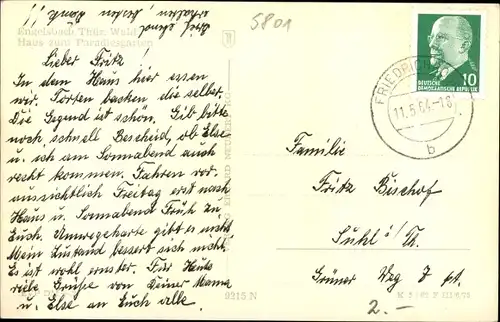 Brief eben
erhalten, besten Dank!
Engelsbach Thür. Wald
Haus zum Paradiesgarten
5801
Lieber Fritz!
In dem Haus hier essen
wir. Torten backen, die selbst.
Die Gegend ist schön. Gib bitte
noch, schnell Bescheid, ob Else
u. ich am Sonnabend auch
recht kommen. Fahren vor-
aussichtlich Freitag erst nach
Haus u. Sonnabend Früh zu
Euch. Umwegekarte gibt es nicht.
Mein Zustand bessert sich nicht.
Es ist wohl ernster. Für Heute
viele Grüße von Deiner Mama
u. Else an Euch alle.
9215 N
FRIEDRICH
11.5.64-18
b
10
DEUTSCHE
DEMOKRATISCHE REPUBLIK
Familie
Fritz Bischof
Suhl i/Th.
Grüner Weg 7 pt.
2.-